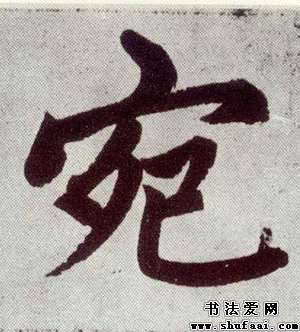 宛
书法爱网
www.shufaai.com